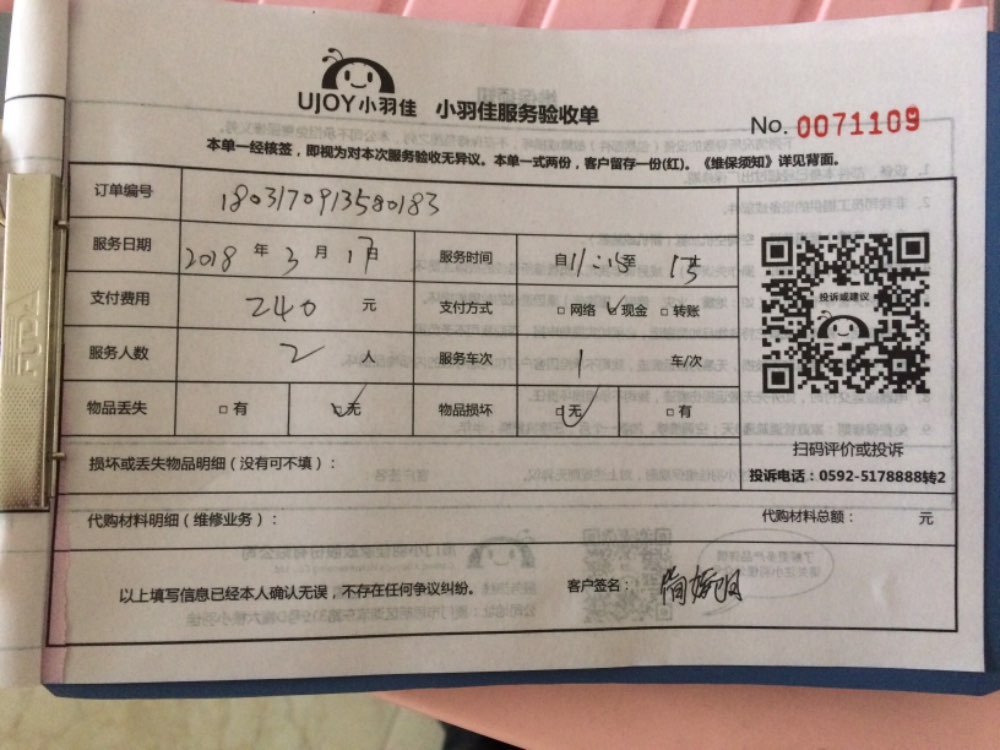 UJOY小羽佳 小羽佳服务验收单
No. 0071109
本单一经核签，即视为对本次服务验收无异议。本单一式两份，客户留存一份(红)。《维保须知》详见背面。
订单编号 1803170913580183
服务日期 2018 年 3 月 17 日 服务时间 自 11:15 至
支付费用 240 元 支付方式 □ 网络 ✓ 现金 □ 转账
投诉或建议
服务人数 2 人 服务车次 1 车/次
物品丢失 □ 有 ✓无 物品损坏 ✓无 □ 有
扫码评价或投诉
损坏或丢失物品明细（没有可不填）：
投诉电话：0592-5178888转2
代购材料明细（维修业务）： 代购材料总额： 元
以上填写信息已经本人确认无误，不存在任何争议纠纷。 客户签名：